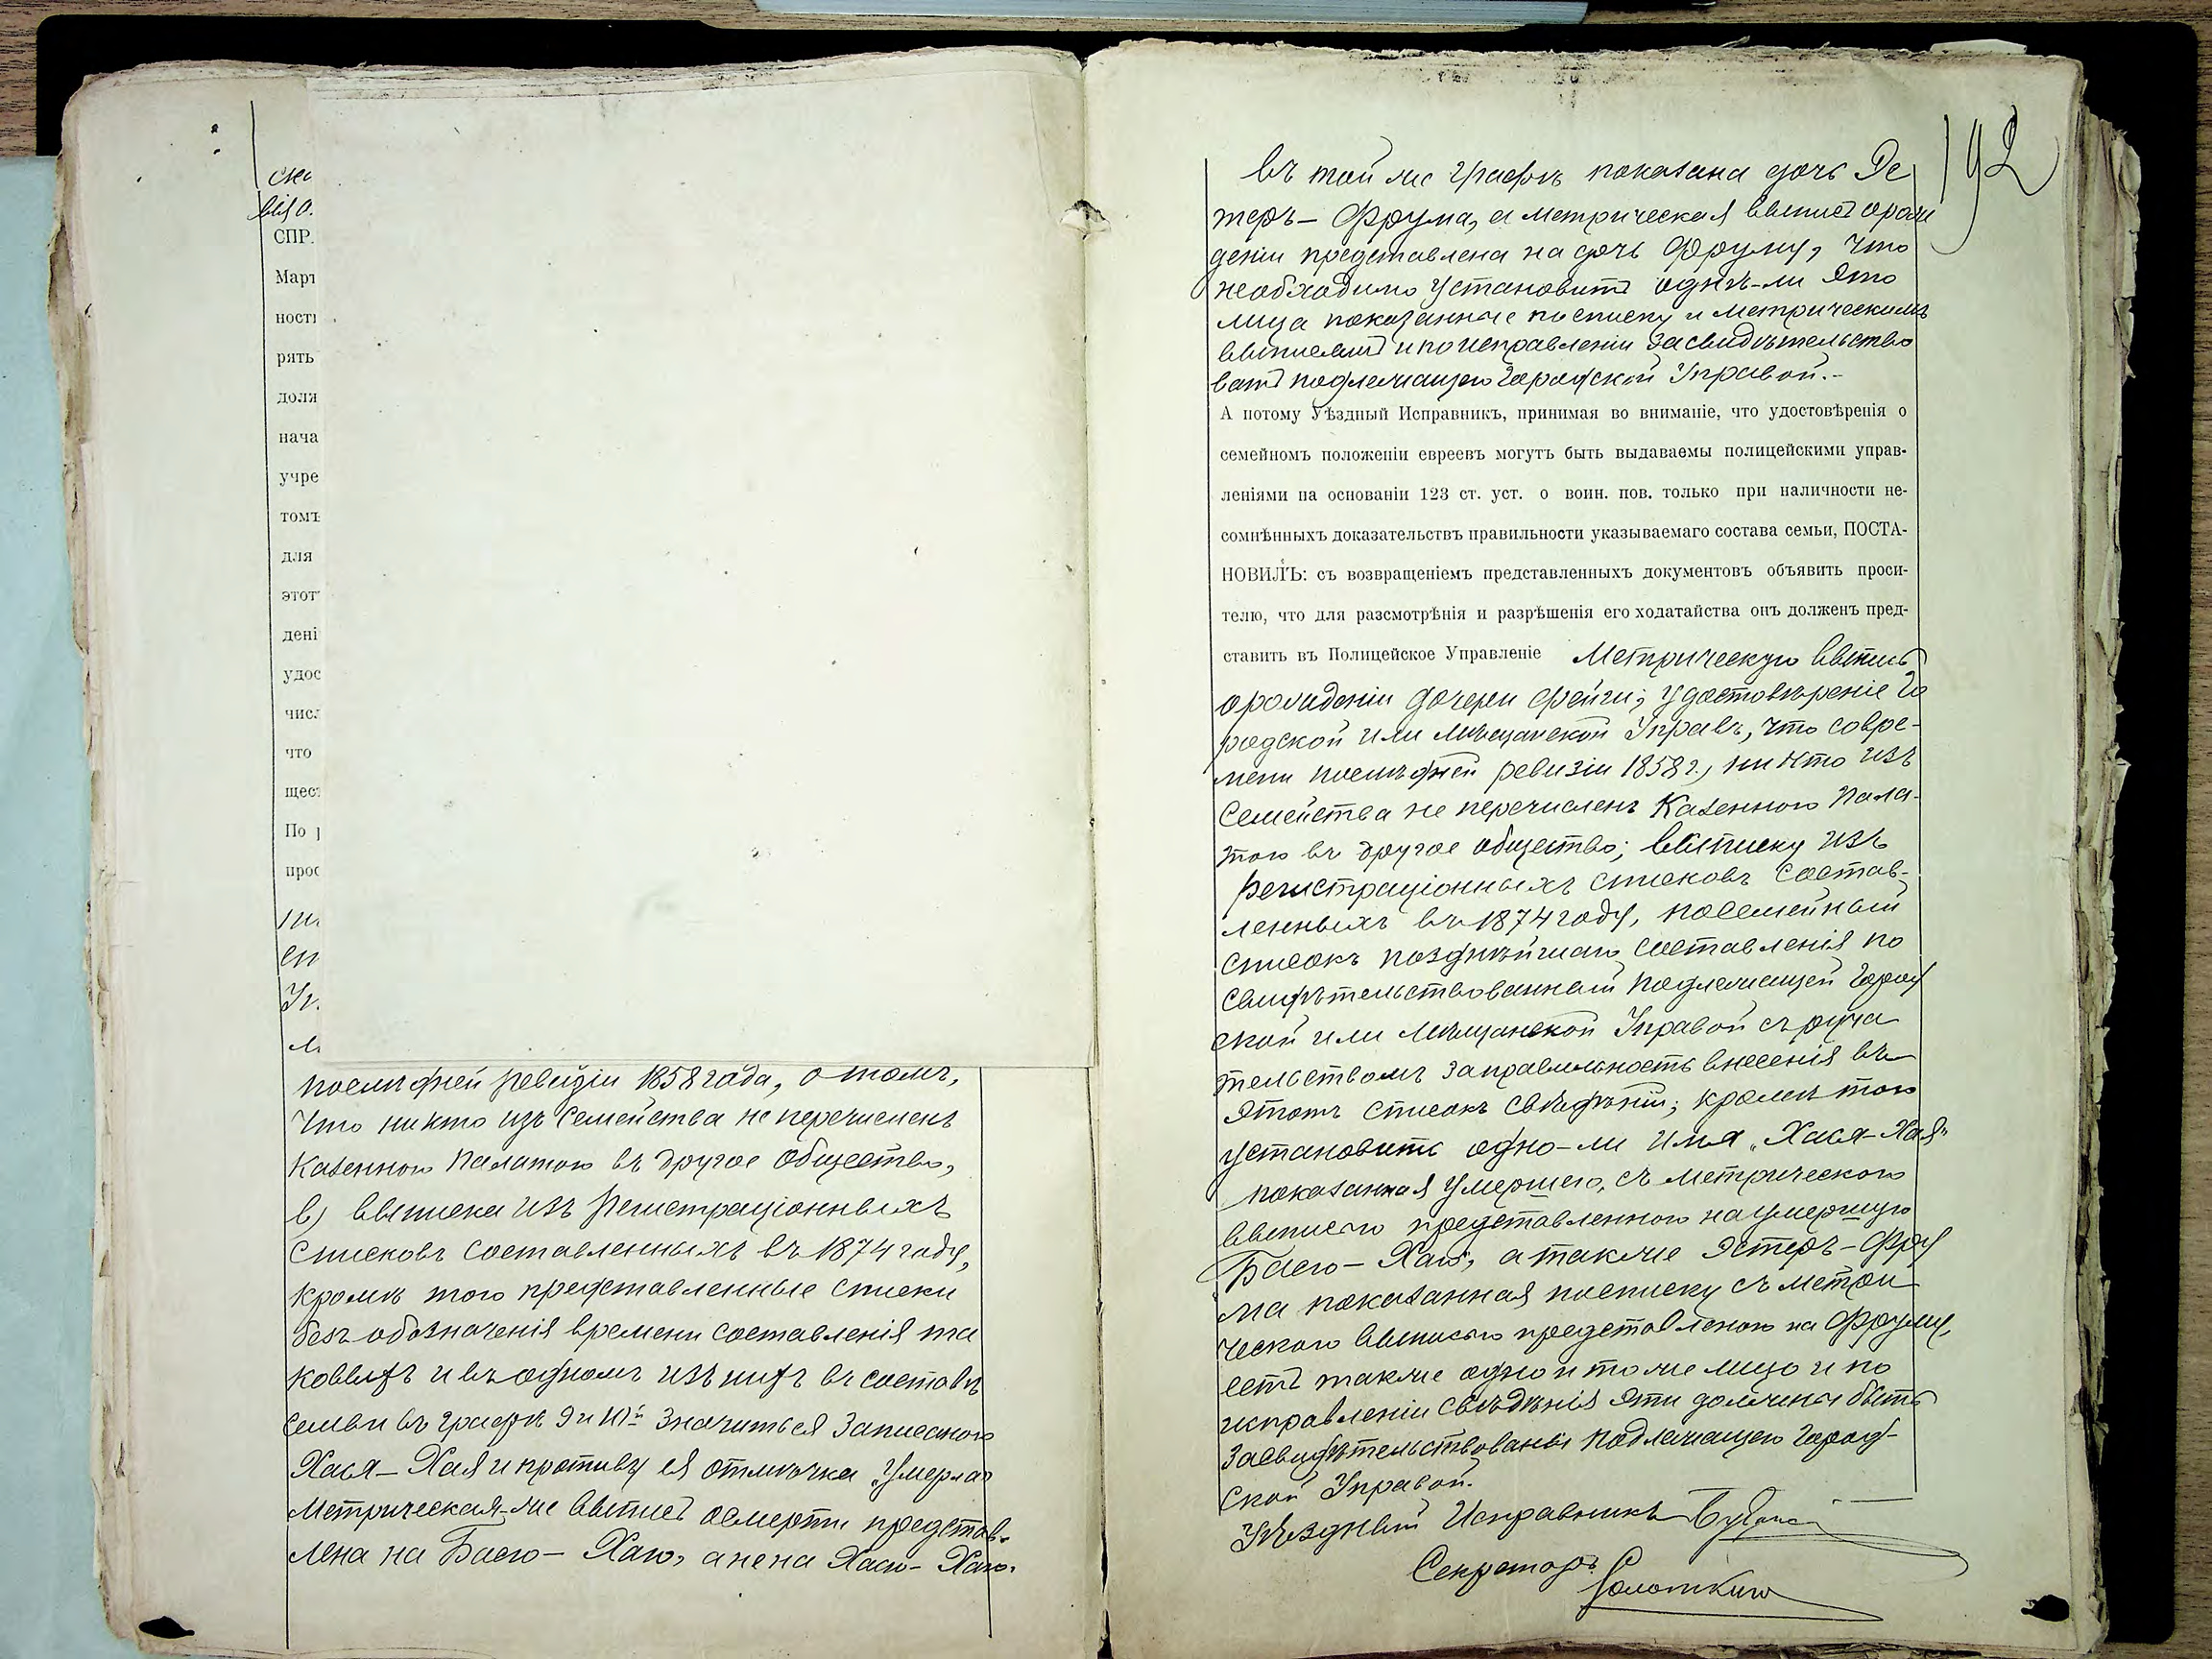 СПР.
Март
ност
рять
долж
нача
учре
томъ
для
этот
дені
удос
числ
что
щес
По
прос
сп
послѣдней ревизіи 1858 года, о томъ,
что никто изъ семейства не перечисленъ
Казенною Палатою въ другое общество,
в) выписка изъ регистраціонныхъ
списковъ составленныхъ въ 1874 году,
кромѣ того представленные списки
безъ обозначенія времени составленія та
ковыхъ и въ одномъ изъ нихъ въ составѣ
семьи въ графѣ 9 и 10й значиться записаною
Хася – Хая и противу ея отмѣтка „умерла"
Метрическая-же выпись о смерти представ-
лена на Басю – Хаю, а не на Хасю – Хаю.
192
въ той же графѣ показана дочь Эс
теръ – Фрума, а метрическая выпись о рож
деніи представлена на дочь Фруму, что
необходимо установить однѣ-ли это
лица показанные по списку и метрическимъ
выписямъ и по исправленіи засвидѣтельство
вать подлежащею Городской Управой.-
А потому Уѣздный Исправникъ, принимая во вниманіе, что удостовѣренія о
семейномъ положеніи евреевъ могутъ быть выдаваемы полицейскими управ-
леніями на основаніи 123 ст. уст. о воин. пов. только при наличности не-
сомнѣнныхъ доказательствъ правильности указываемаго состава семьи, ПОСТА-
НОВИЛЪ: съ возвращеніемъ представленныхъ документовъ объявить проси-
телю, что для разсмотрѣнія и разрѣшенія его ходатайства онъ долженъ пред-
ставить въ Полицейское Управленіе Метрическую выпись
о рожденіи дочери Фейги; удостовѣреніе Го
родской или Мѣщанской Управъ, что со вре-
мени послѣдней ревизіи 1858 г., никто изъ
семейства не перечисленъ Казенною Пала-
тою въ другое общество; выписку изъ
регистраціонныхъ списковъ состав-
ленныхъ въ 1874 году, посемейный
списокъ позднѣйшаго составленія по
свидѣтельствованный подлежащей Город
ской или Мѣщанской Управой съ руча
тельствомъ за правильность внесенія въ
этотъ списокъ свѣдѣній; кромѣ того
установить одно-ли имя „Хася-Хая"
показанная умершею, съ метрическою
выписью представленною на умершую
Басю – Хаю, а также Эстеръ – Фру
ма показанная по списку съ метри
ческою выписью представленою на Фруму,
есть также одно и тоже лицо и по
исправленіи свѣдѣнія эти должны быть
засвидѣтельствованы подлежащею Город-
ской Управой.
Уѣздный Исправникъ
Секретарь